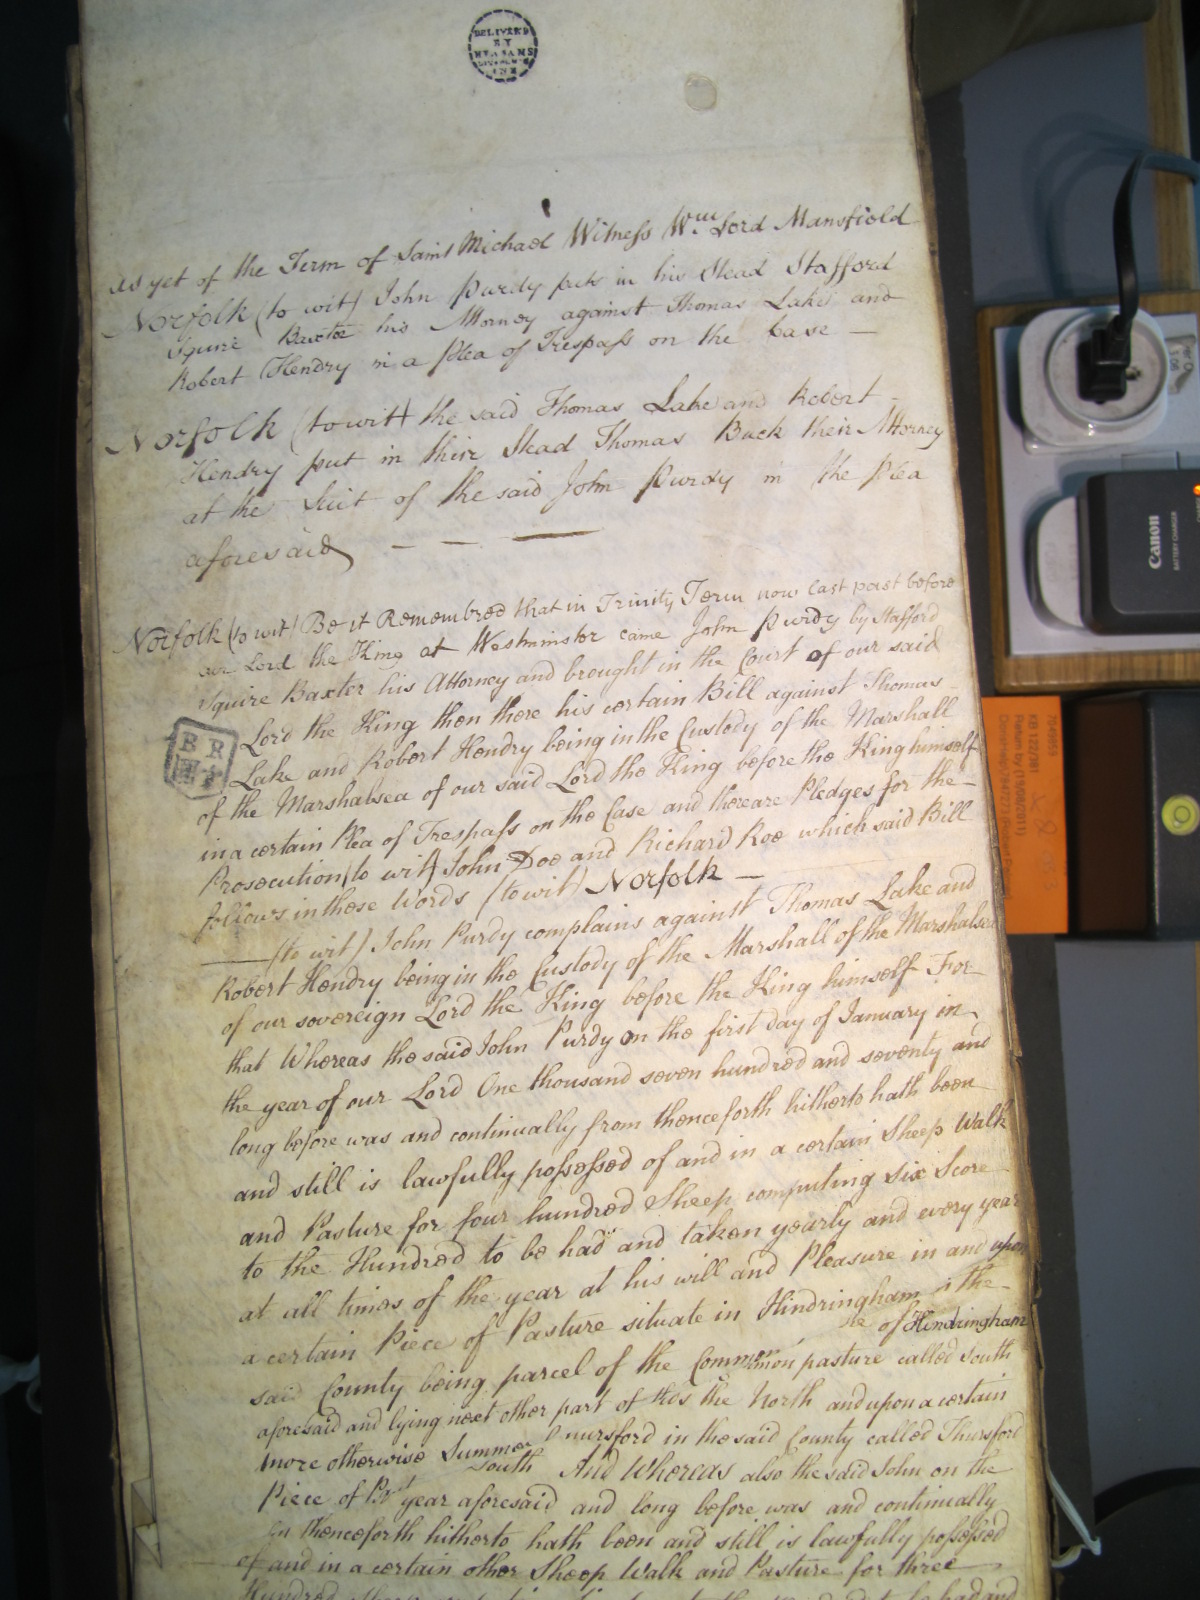 DELIVERD
BY
As yet of the Term of Saint Michael Witness Wm. Lord Mansfield
Norfolk (to wit) John Purdy puts in his Stead Stafford
Squire Baxter his Attorney against Thomas Lake and
Robert Hendry in a Plea of Trespass on the Case —
Norfolk (to wit) the said Thomas Lake and Robert
Hendry put in their Stead Thomas Buck their Attorney
at the Suit of the said John Purdy in the Plea
aforesaid — — —
Norfolk (to wit) Be it Remembred that in Trinity Term now last past before
our Lord the King at Westminster came John Purdy by Stafford
Squire Baxter his Attorney and brought in the Court of our said
Lord the King then there his certain Bill against Thomas
Lake and Robert Hendry being in the Custody of the Marshall
of the Marshalsea of our said Lord the King before the King himself
in a certain Plea of Trespass on the Case and there are Pledges for the
Prosecution (to wit) John Doe and Richard Roe which said Bill
follows in these Words (to wit) Norfolk —
— (to wit) John Purdy complains against Thomas Lake and
Robert Hendry being in the Custody of the Marshall of the Marshalsea
of our sovereign Lord the King before the King himself For
that Whereas the said John Purdy on the first day of January in
the year of our Lord One thousand seven hundred and seventy and
long before was and continually from thenceforth hitherto hath been
and still is lawfully possessed of and in a certain Sheep Walk
and Pasture for four hundred Sheep computing six Score
to the Hundred to be had and taken yearly and every year
at all times of the year at his will and Pleasure in and upon
a certain Piece of Pasture situate in Hindringham in the
said County being parcel of the Common of Hindringham
aforesaid and lying next other part of pasture called South
more otherwise Summer the North and upon a certain
Piece of in the said County called Thursford
South And Whereas also the said John on the
year aforesaid and long before was and continually
thenceforth hitherto hath been and still is lawfully possessed
of and in a certain other Sheep Walk and Pasture for three
Hundred
BR
Canon
BATTERY CHARGER
KB 122/381